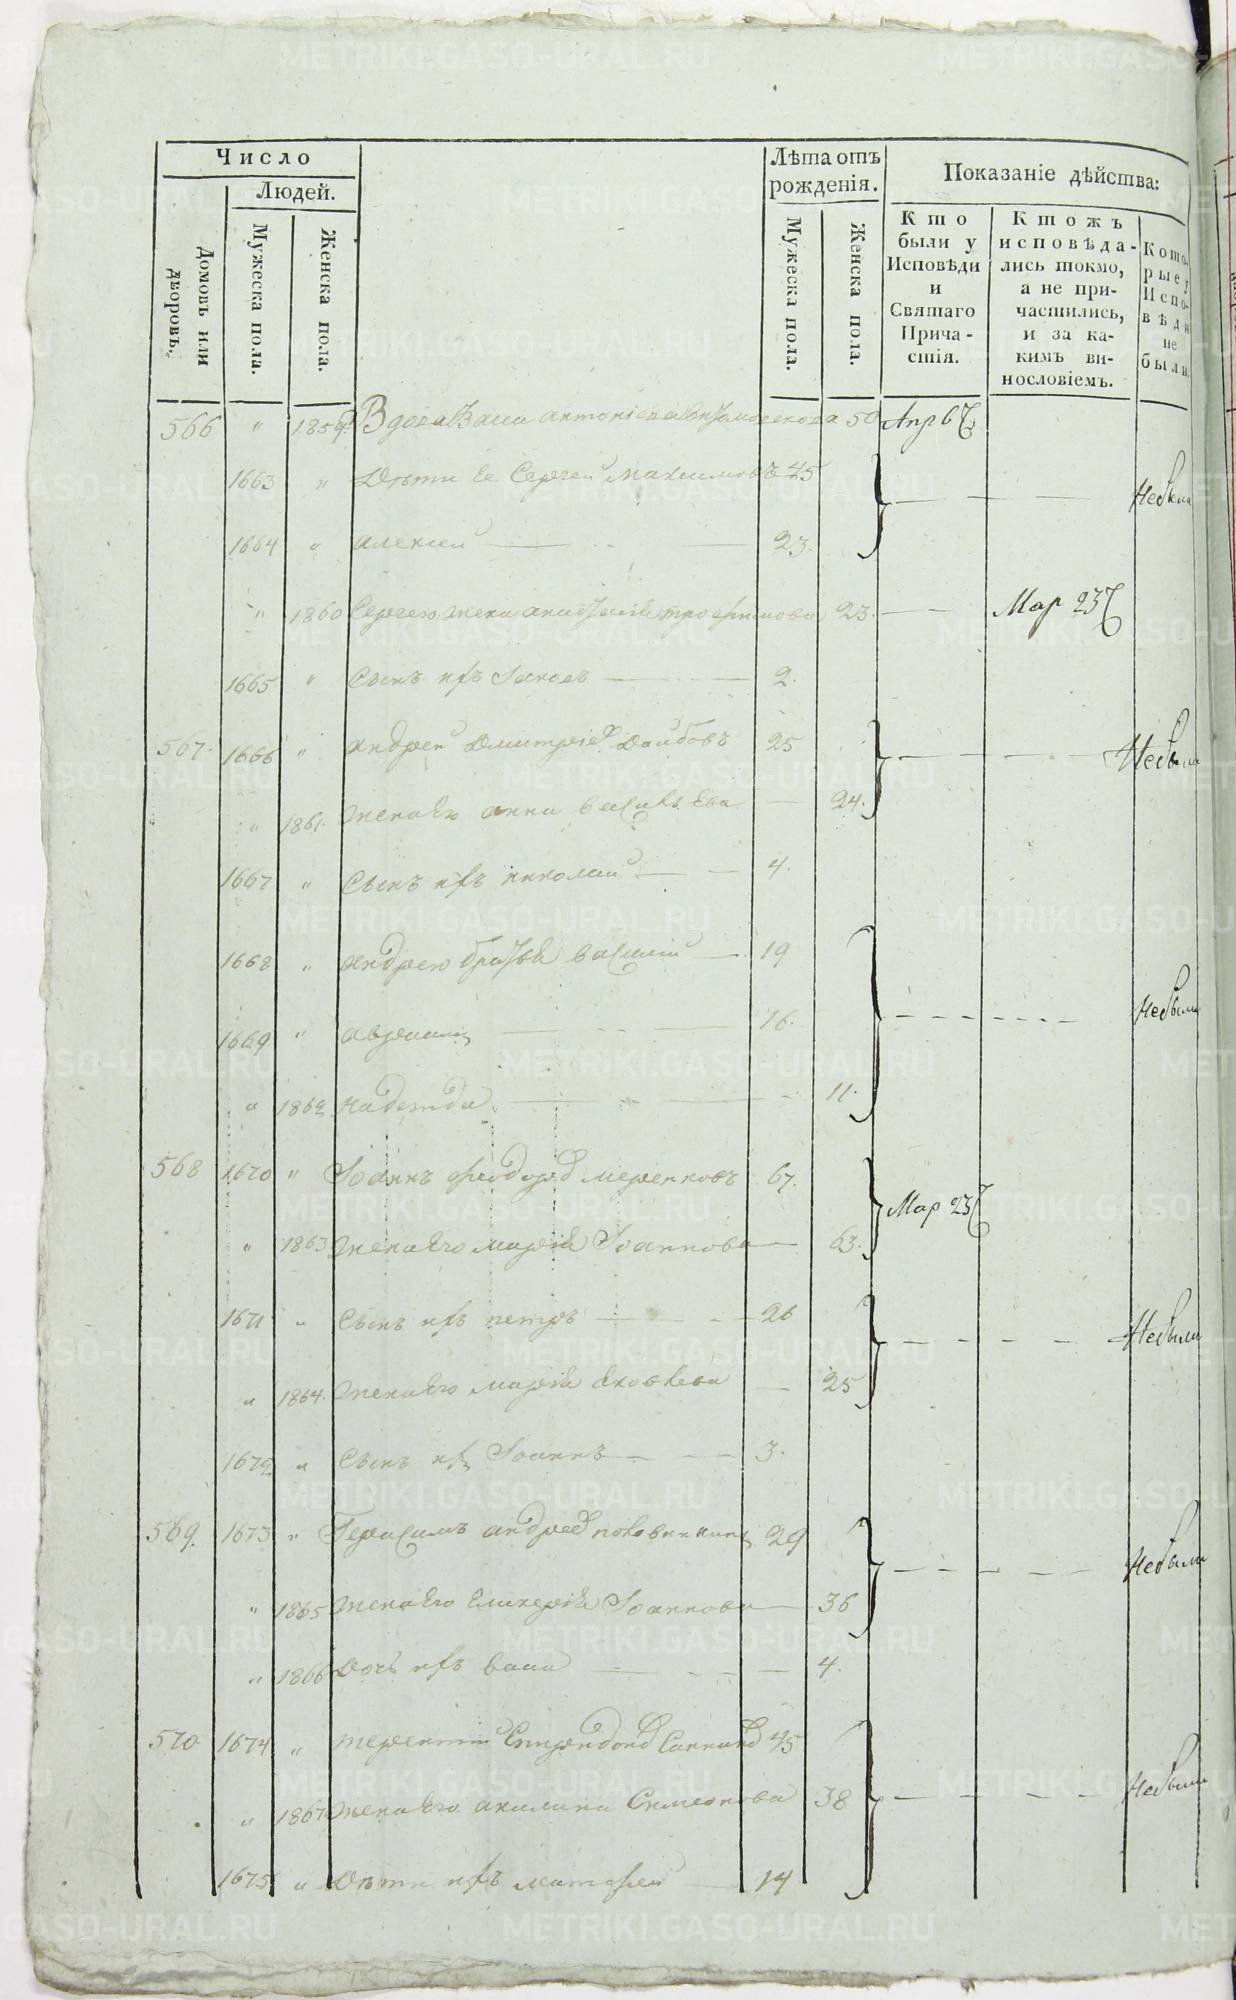 Число
Людей.
Домовъ или дворовъ.
Мужеска пола.
Женска пола.
Лѣта отъ рожденія.
Мужеска пола.
Женска пола.
Показаніе дѣйства:
Кто были у Исповѣди и Святаго Причастія.
Ктожъ исповѣдались токмо, а не причастились, и за какимъ винословіемъ.
Которые у Исповѣди не были.
566 " 1859 Вдова антоніева 50 Апр 6
1663 " Дѣти Ее Сергеи Максимовъ 45 Небыли
1664 " алексеи 23.
" 1860 Сергею жена трофимова 23. Мар 23
1665 " Сынъ ихъ Іаковъ 2.
567. 1666 " андреи Дмитріев 25 Небыли
" 1861. жена Его анна василь Ева 24.
1667 " Сынъ ихъ николаи 4.
1668 " андрею братья василии 19 Небыли
1669 " авраамъ 16.
" 1862 надежда 11.
568 1670 " Іоаннъ феодоров меренковъ 67. Мар 23
" 1863 жена Его марія Іоаннова 63.
1671 " Сынъ ихъ петръ 26 Небыли
" 1864. жена Его марія Яковлева 25
1672 " Сынъ их Іоаннъ 3.
569. 1673 " Герасимъ андреев половинкинъ 29 Небыли
" 1865 жена Его Гликерія Іоаннова 36
" 1866 дочь ихъ васа 4.
570. 1674 " терентии Спиридонов 45 Небыли
" 1867 жена Его акилина Симеонова 38
1675 " дѣти ихъ матфеи 14
METRIKI.GASO-URAL.RU